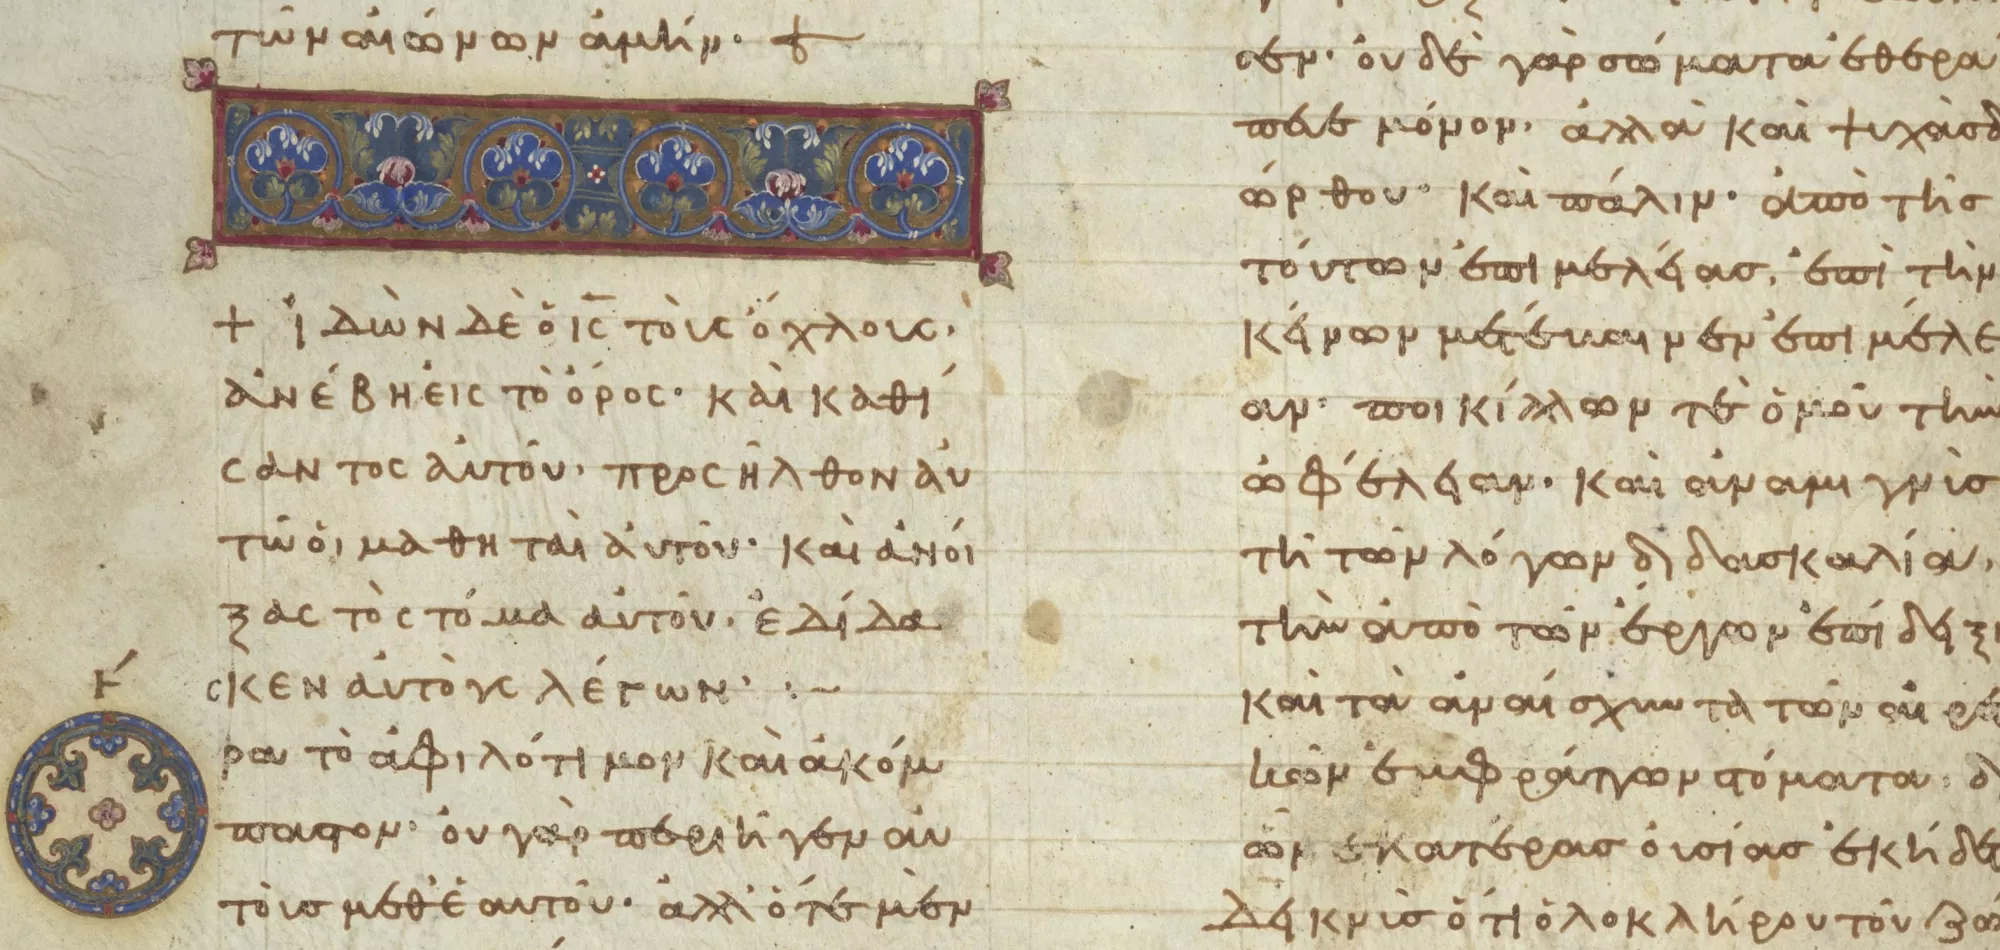 τῶν αἰώνων ἀμήν· +
+ Ἰδὼν δὲ ὁ ἰς τοὺς ὄχλους·
ἀνέβη εἰς τὸ ὄρος· καὶ καθί
σαντος αὐτοῦ· προσῆλθον αὐ
τῶ οἱ μαθηταὶ αὐτοῦ· καὶ ἀνοί
ξας τὸ στόμα αὐτοῦ· ἐδίδα
σκεν αὐτοὺς λέγων· :~
ρα τὸ ἀφιλότιμον καὶ ἀκόμ
παστον· οὐ γὰρ περιῆγεν αὐ
τοὺς μεθ' ἑαυτοῦ· ἀλλ' ὅτε μὲν
σεν· οὐδὲ γὰρ σώματα ἐθερά
πευε μόνον· ἀλλὰ καὶ ψυχὰς δ
ώρθου· καὶ πάλιν· ἀπὸ τῆς
τούτων ἐπιμελείας, ἐπὶ τὴν
κείνων μετέβαινεν ἐπιμέλε
αν· ποικίλλων τε ὁμοῦ τὴν
ὠφέλειαν· καὶ ἀναμιγνὺς
τῆ τῶν λόγων διδασκαλία,
τὴν ἀπὸ τῶν ἔργων ἐπίδειξι
καὶ τὰ ἀναίσχυντα τῶν αἱρε
ἐμφράττων στόματα· δ
ὧν ἑκατέρας οὐσίας ἐκήδε
δεικνὺς ὅτι ὁλοκλήρου τοῦ ζώ